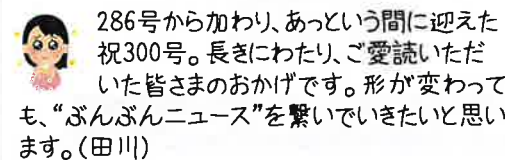 286号から加わり、あっという間に迎えた
祝300号。長きにわたり、ご愛読いただ
いた皆さまのおかげです。形が変わって
も、“ぶんぶんニュース”を繋いでいきたいと思い
ます。(田川)